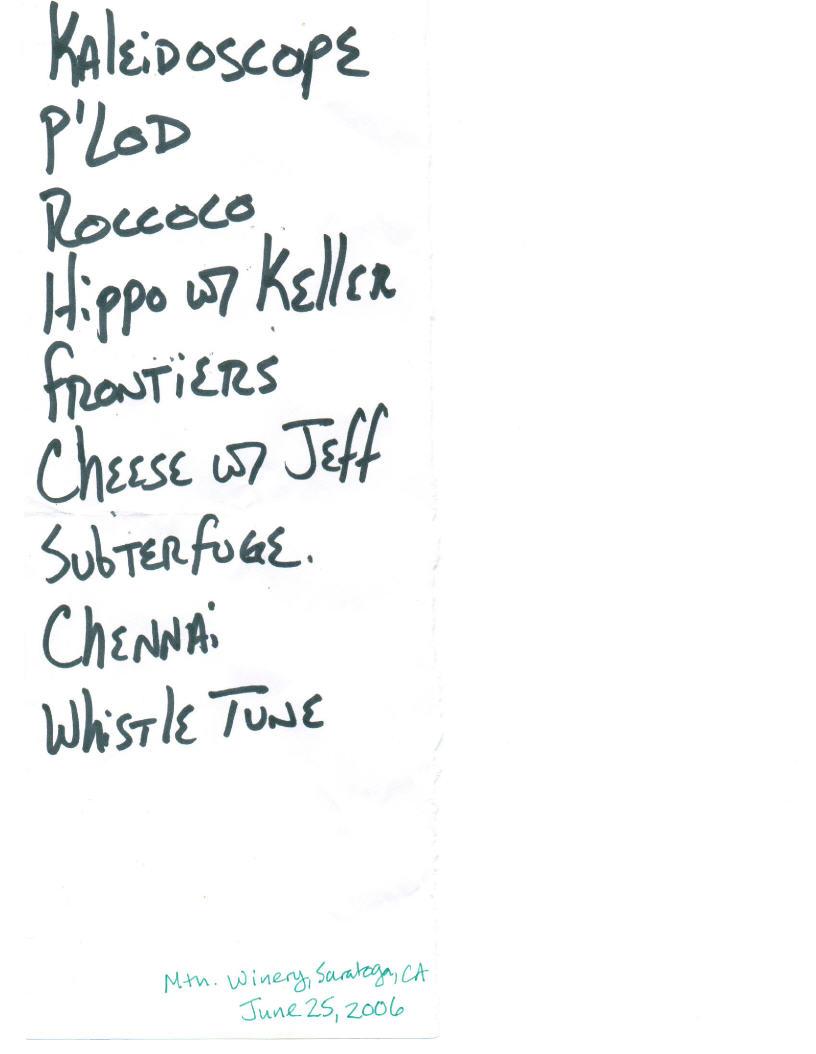 Kaleidoscope
P'Lod
Roccoco
Hippo w/ Keller
Frontiers
Cheese w/ Jeff
Subterfuge.
Chennai
Whistle Tune
Mtn. Winery, Saratoga, CA
June 25, 2006